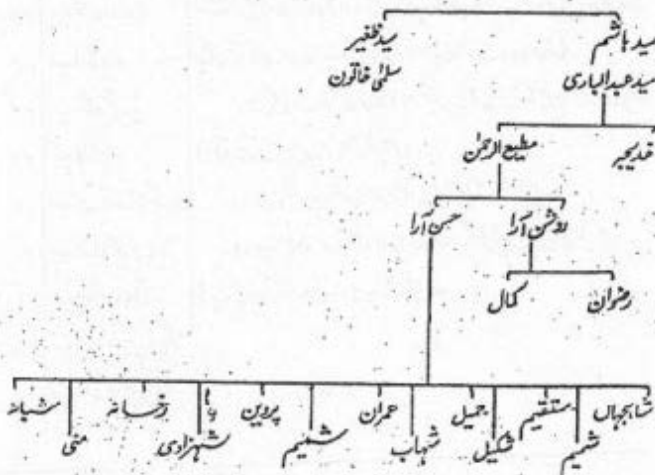 سید ہاشم سید ظفیر
سید عبدالباری سلمیٰ خاتون
خدیجہ مطیع الرحمٰن
روشن آرا حسن آرا
رضوان کمال
شاہجہاں شمیم مستقیم شکیل جمیل شہاب عمران شمیم پروین شہزادی رخسانہ منی شبانہ